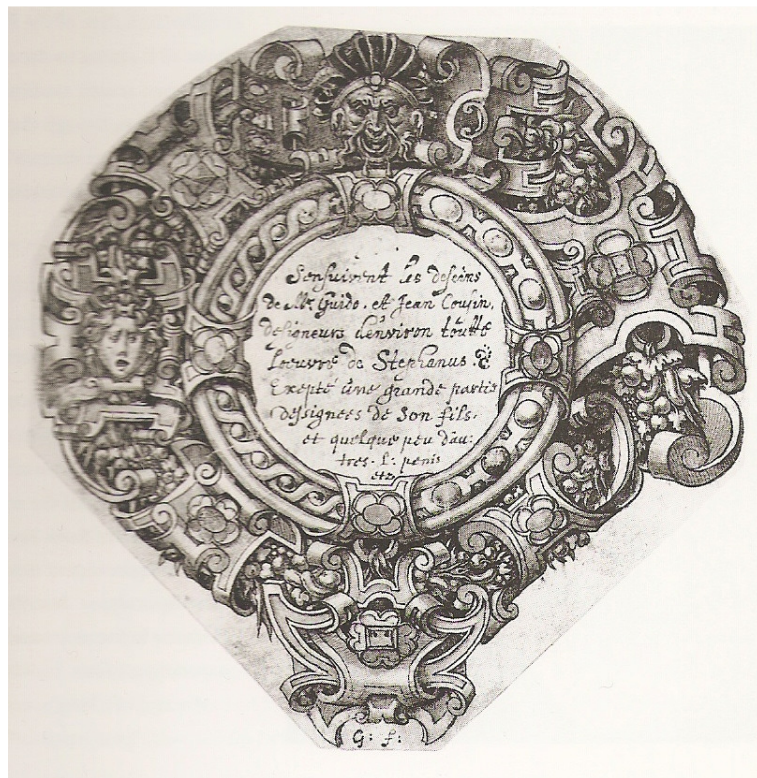 Sensuivent les deseins
de Mr Guido. et Jean Cousin,
designeurs denviron toutte
Loeuvre de Stephanus
Exepté une grande partie
dessignees de son fils.
et quelque peu dau:
tres. L: penis
etz
G: f: